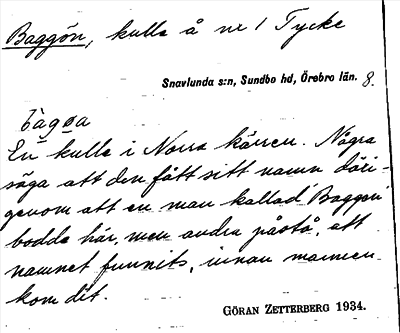 Baggön, kulle å nr 1 Tycke
Snavlunda s:n, Sundbo hd, Örebro län. 8.
bàgœa
En kulle i Norra kärren. Några
säga att den fått sitt namn däri-
genom att en man kallad "Baggen"
bodde här, men andra påstå, att
namnet funnits, innan mannen
kom dit.
GÖRAN ZETTERBERG 1934.